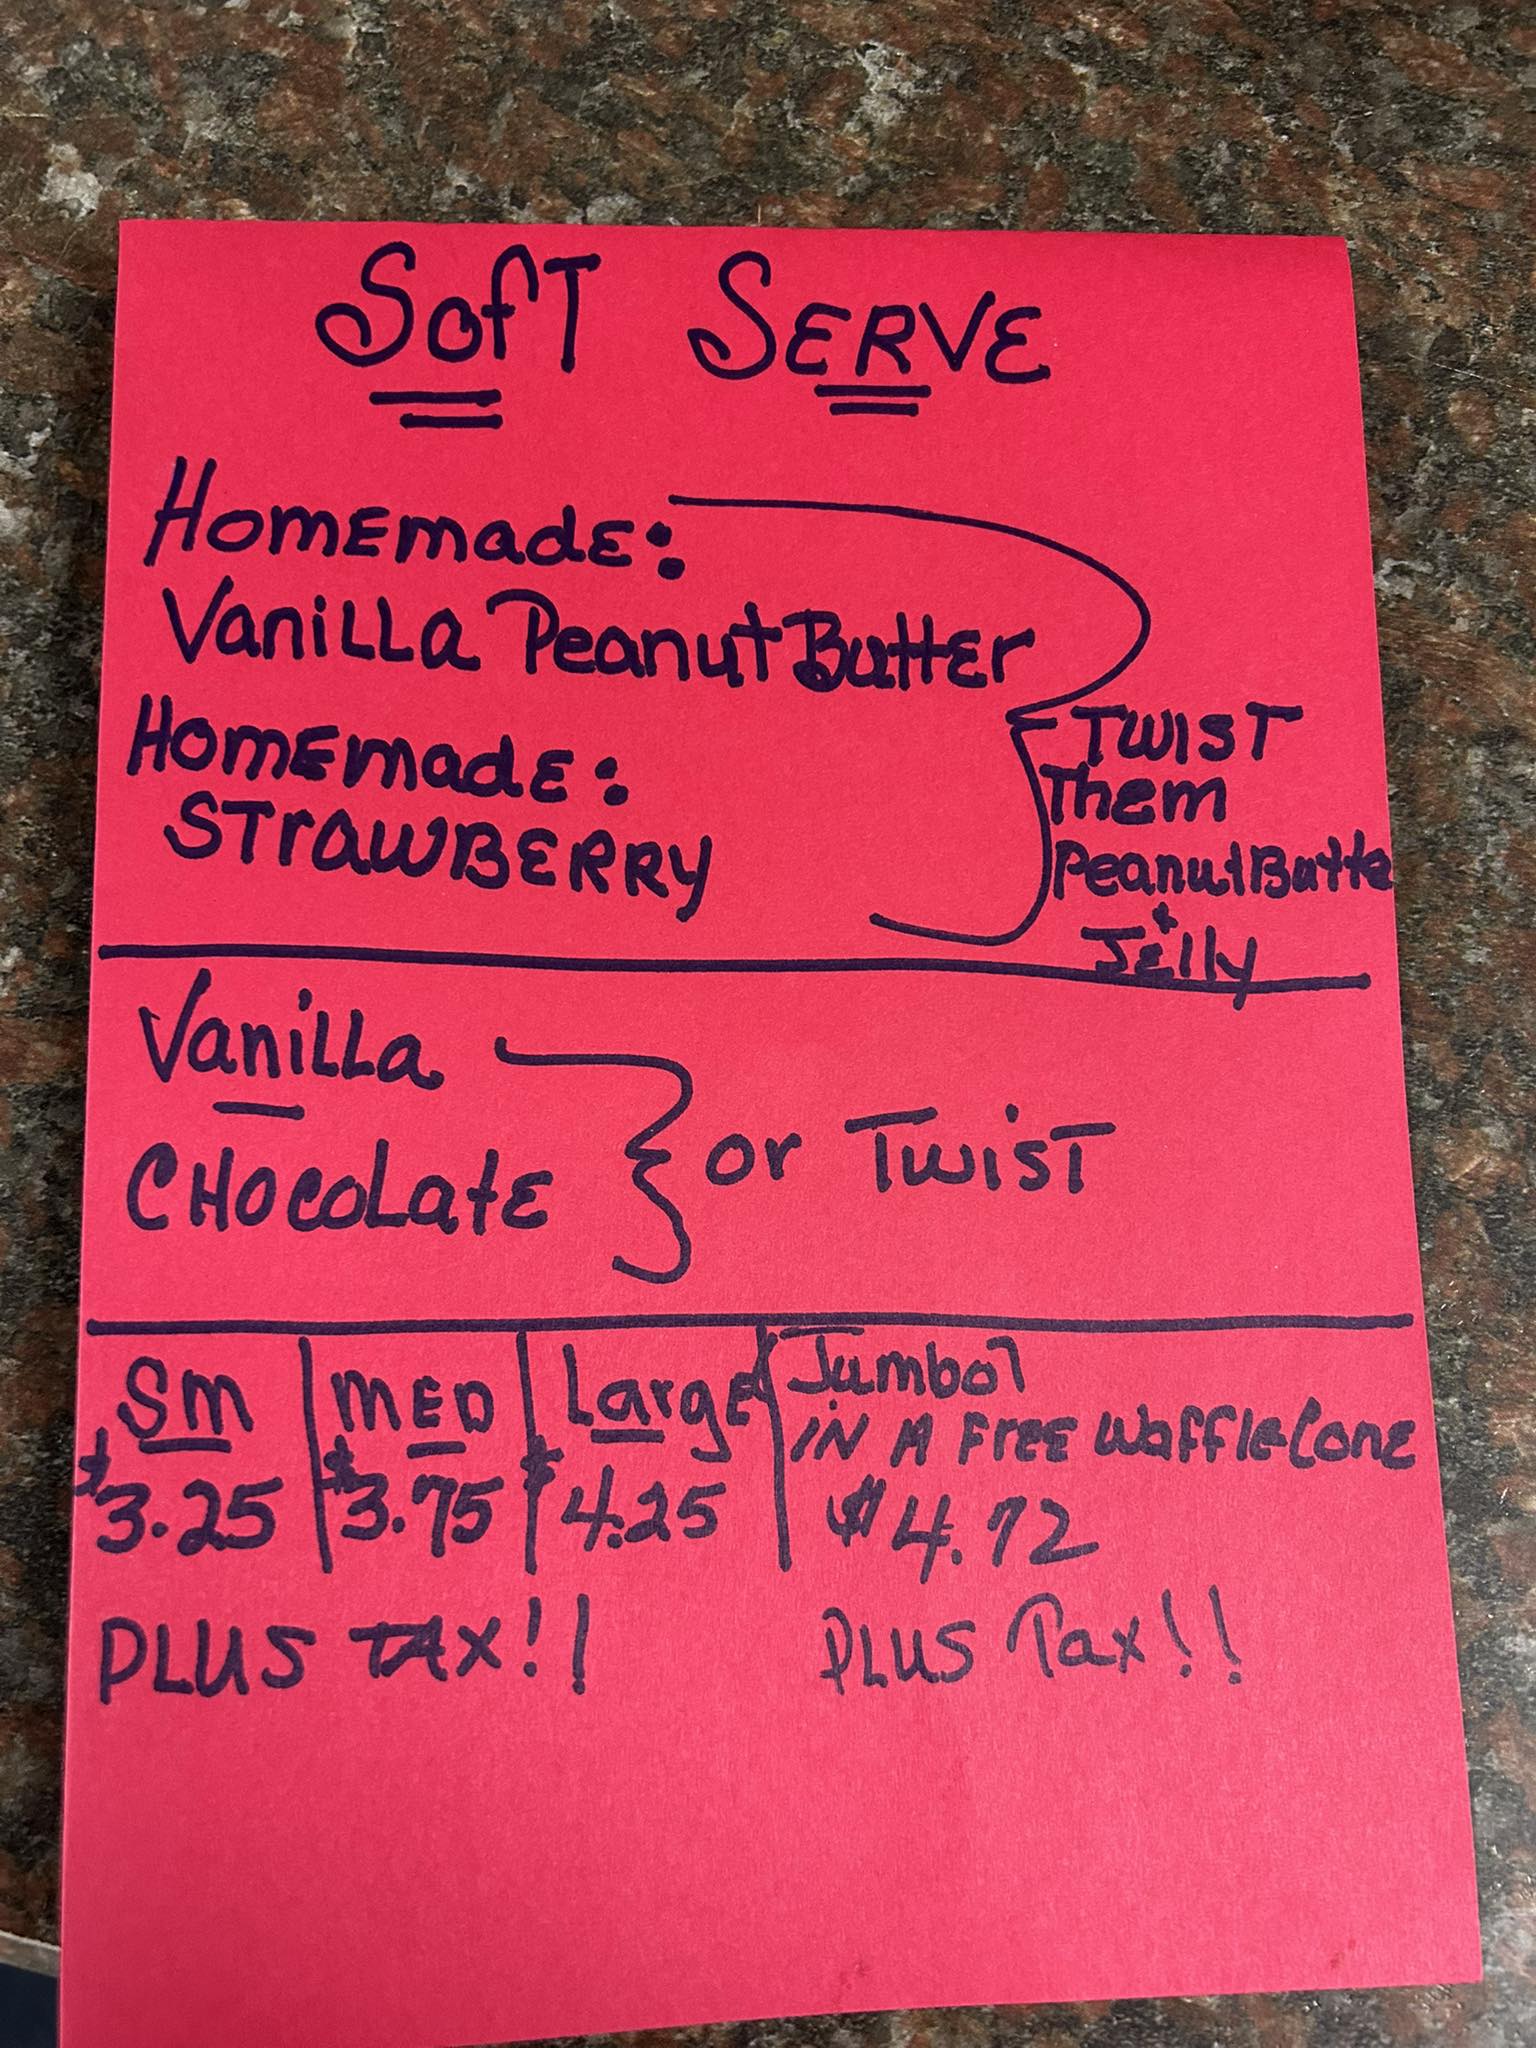 SofT SERVE
HomEmadE:
VaniLLa PeanutButtEr
HomEmadE:
STrawBERRy
TWIST
Them
PeanutButte
+
JElly
VaniLLa
CHocoLatE
or TwisT
Sm
$3.25
mED
$3.75
LargE
$4.25
Jumbo!
IN A FREE WaffleCone
$4.72
PLUS TAX!!
PLUS Tax!!